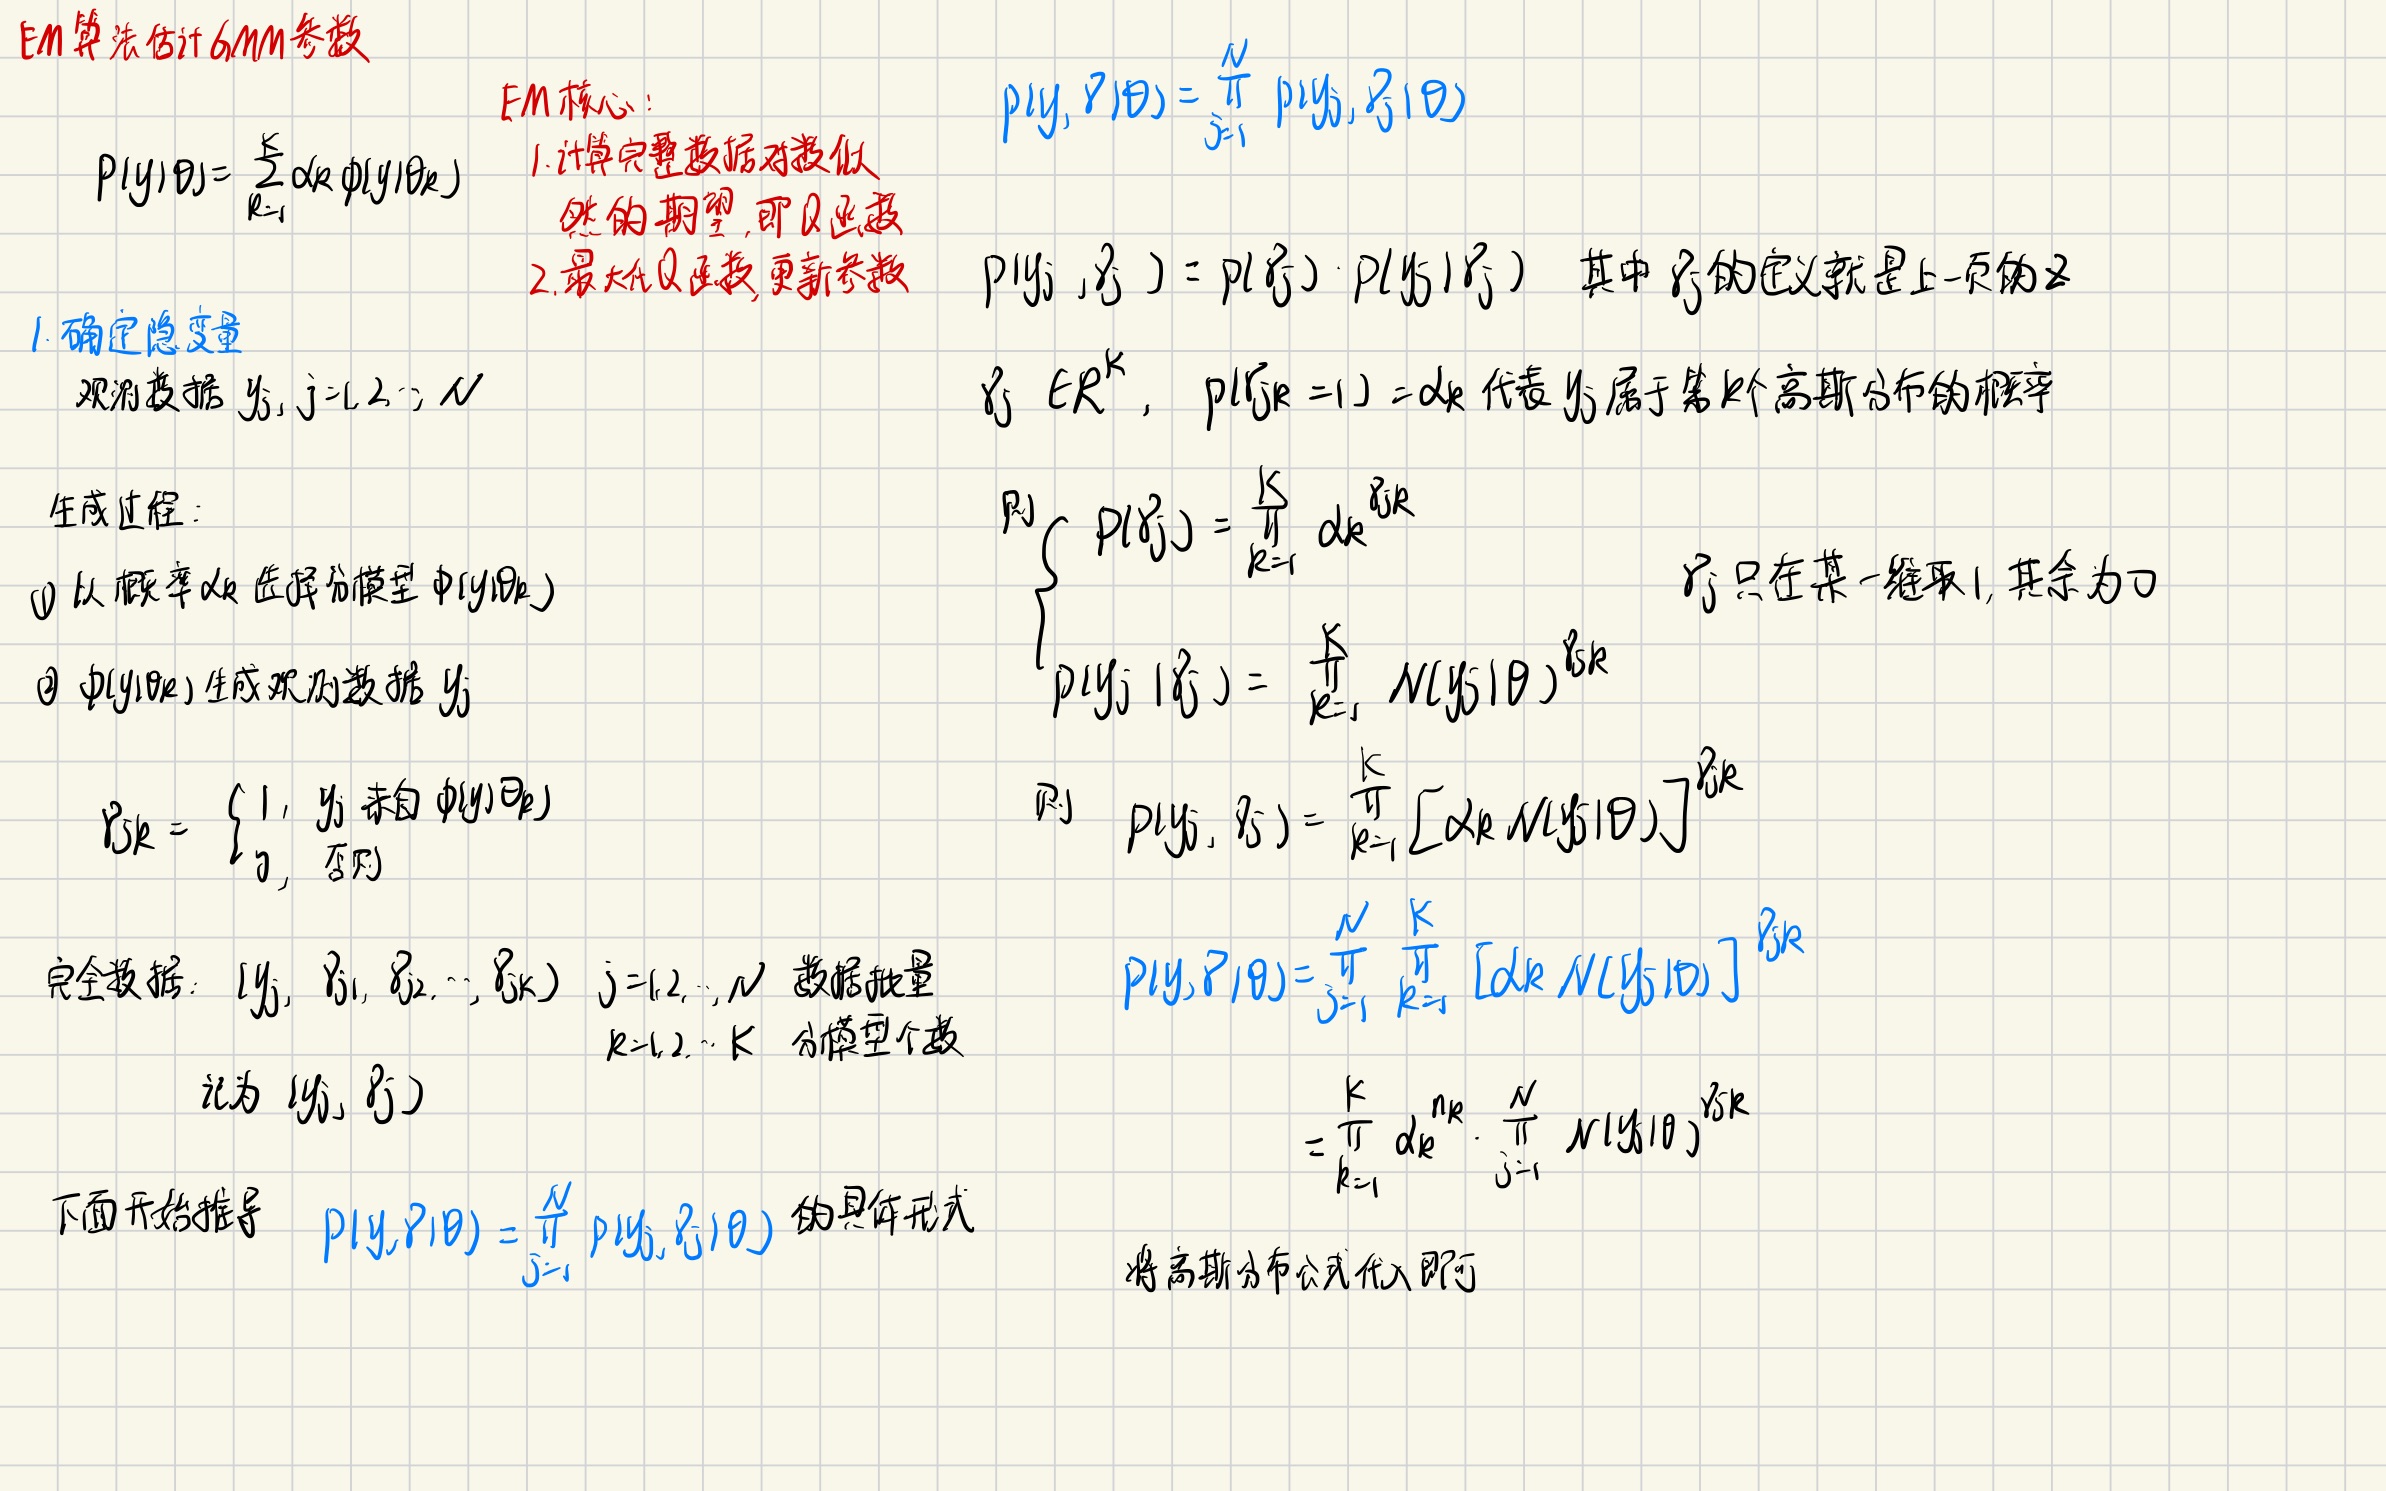 EM算法估计GMM参数
P(y|θ) = ∑_{k=1}^{K} αk φ(y|θk)
EM核心:
1.计算完整数据对数似
然的期望,即Q函数
2.最大化Q函数,更新参数
1.确定隐变量
观测数据 yj, j=1,2…, N
生成过程:
① 以概率αk选择分模型 φ(y|θk)
② φ(y|θk)生成观测数据 yj
γjk = { 1, yj 来自 φ(y|θk)
0, 否则
完全数据: (yj, γj1, γj2, …, γjK) j=1,2,…,N 数据批量
k=1,2,…K 分模型个数
记为 (yj, γj)
下面开始推导 P(y,γ|θ) = ∏_{j=1}^{N} p(yj,γj|θ) 的具体形式
p(y,γ|θ) = ∏_{j=1}^{N} p(yj,γj|θ)
p(yj,γj) = p(γj)·p(yj|γj) 其中 γj的定义就是上一页的z
γj ∈R^K, p(γjk=1) = αk 代表yj属于第k个高斯分布的概率
则 { p(γj) = ∏_{k=1}^{K} αk^{γjk}
γj只在某一维取1,其余为0
p(yj|γj) = ∏_{k=1}^{K} N(yj|θ)^{γjk}
则 p(yj,γj) = ∏_{k=1}^{K} [αk N(yj|θ)]^{γjk}
p(y,γ|θ) = ∏_{j=1}^{N} ∏_{k=1}^{K} [αk N(yj|θ)]^{γjk}
= ∏_{k=1}^{K} αk^{nk} · ∏_{j=1}^{N} N(yj|θ)^{γjk}
将高斯分布公式代入即可